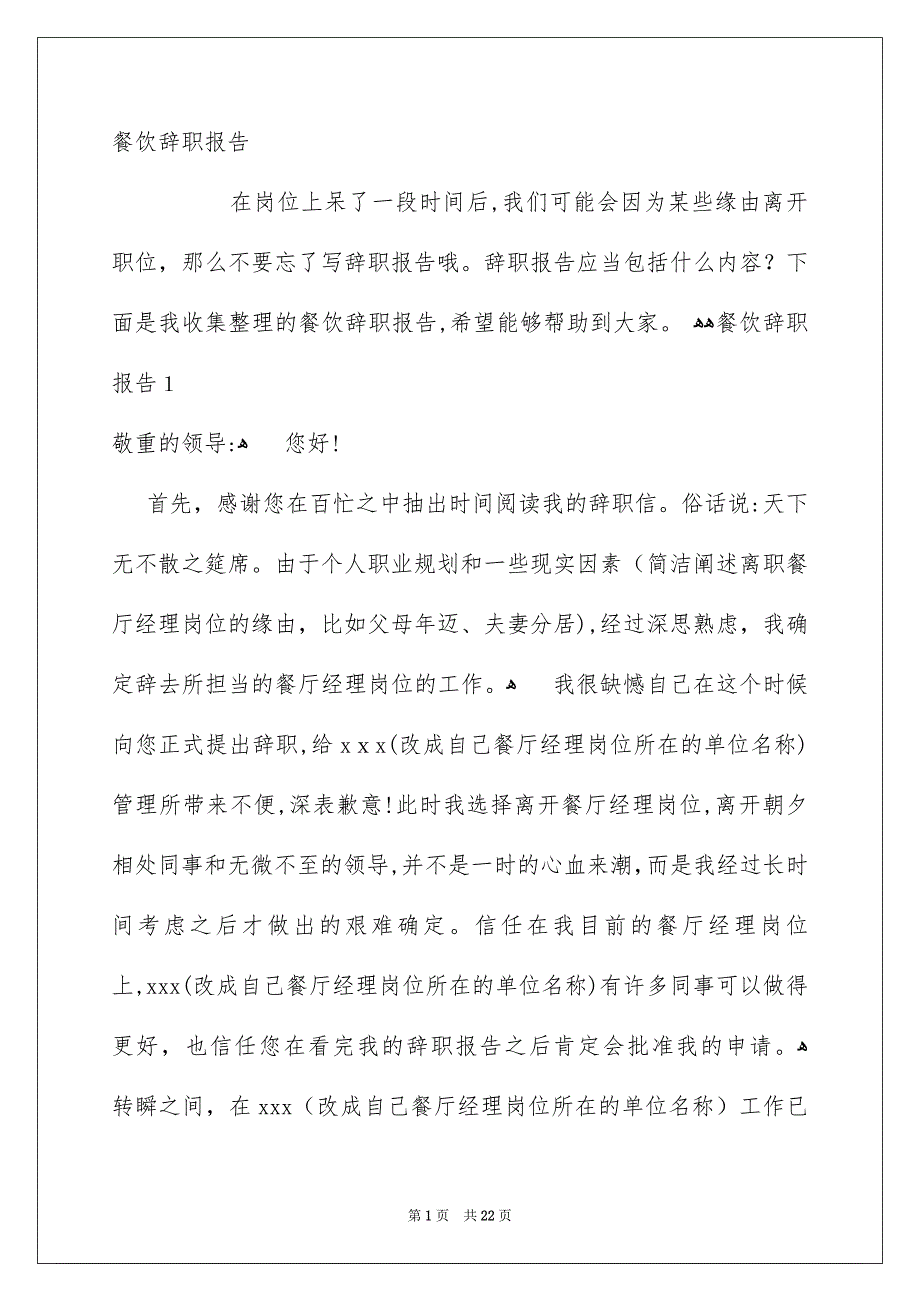 餐饮辞职报告
在岗位上呆了一段时间后,我们可能会因为某些缘由离开
职位，那么不要忘了写辞职报告哦。辞职报告应当包括什么内容？下
面是我收集整理的餐饮辞职报告,希望能够帮助到大家。 ﻫﻫ餐饮辞职
报告１
敬重的领导:ﻫ 您好!
首先，感谢您在百忙之中抽出时间阅读我的辞职信。俗话说:天下
无不散之筵席。由于个人职业规划和一些现实因素（简洁阐述离职餐
厅经理岗位的缘由，比如父母年迈、夫妻分居),经过深思熟虑，我确
定辞去所担当的餐厅经理岗位的工作。ﻫ 我很缺憾自己在这个时候
向您正式提出辞职,给ｘｘｘ(改成自己餐厅经理岗位所在的单位名称)
管理所带来不便,深表歉意!此时我选择离开餐厅经理岗位,离开朝夕
相处同事和无微不至的领导,并不是一时的心血来潮,而是我经过长时
间考虑之后才做出的艰难确定。信任在我目前的餐厅经理岗位
上,xxx(改成自己餐厅经理岗位所在的单位名称)有许多同事可以做得
更好，也信任您在看完我的辞职报告之后肯定会批准我的申请。ﻫ
转瞬之间，在 xxx（改成自己餐厅经理岗位所在的单位名称）工作已
第 1 页 共 22 页